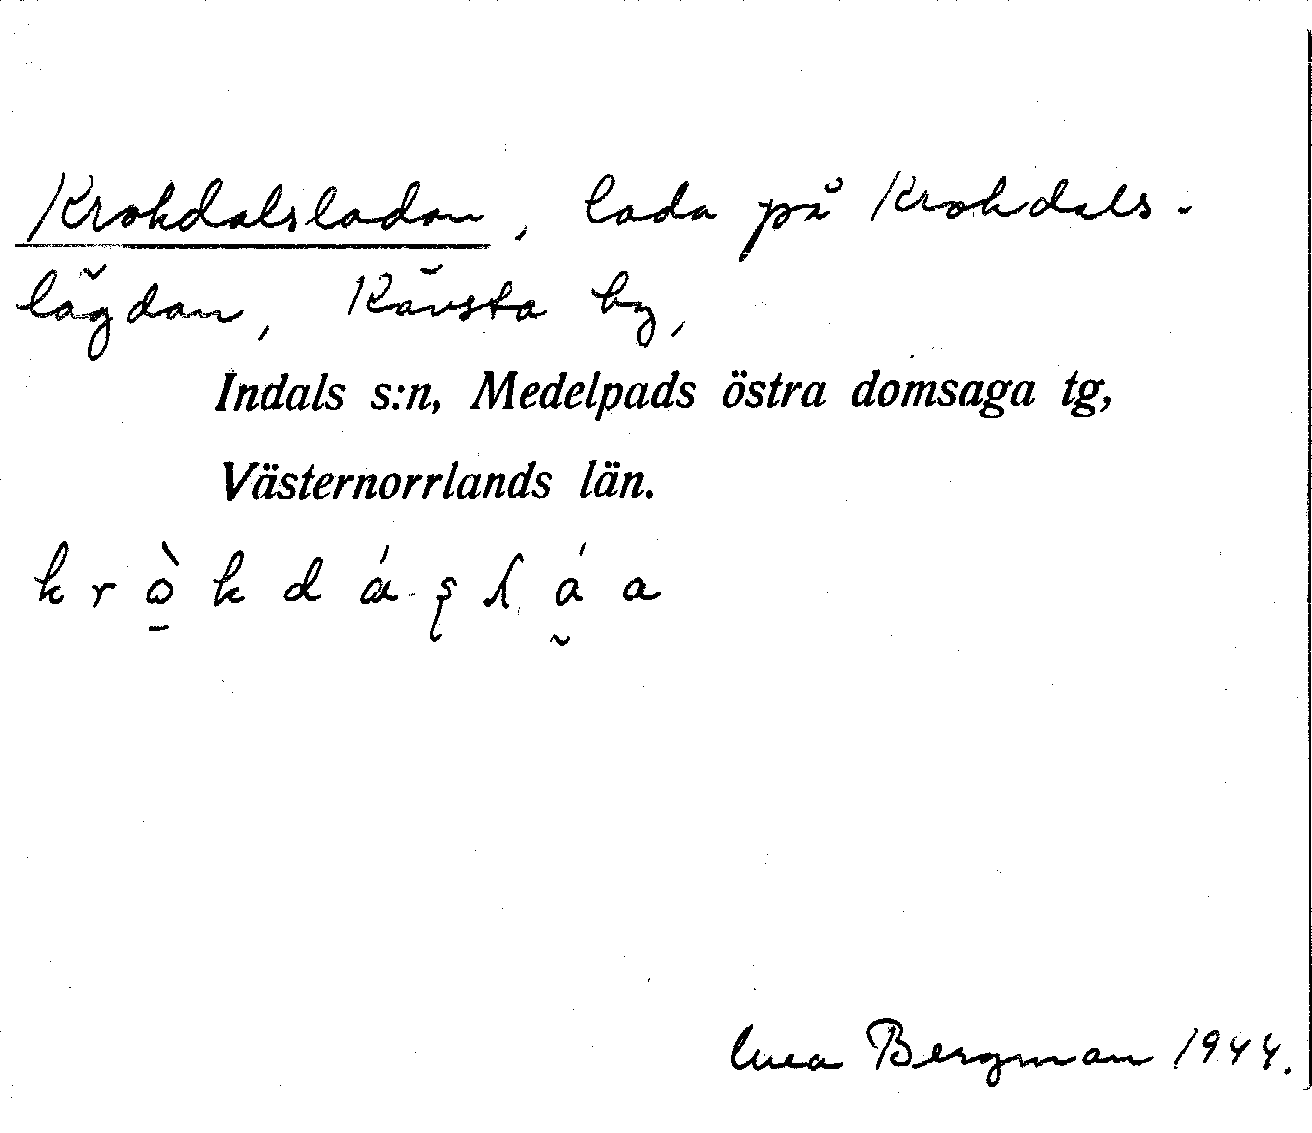 Krokdalsladan, lada på Krokdals-
lägdan, Kävsta by,
Indals s:n, Medelpads östra domsaga tg,
Västernorrlands län.
k r ò̱ k d á ʂ ʎ á̰ a
Bergman 1944.